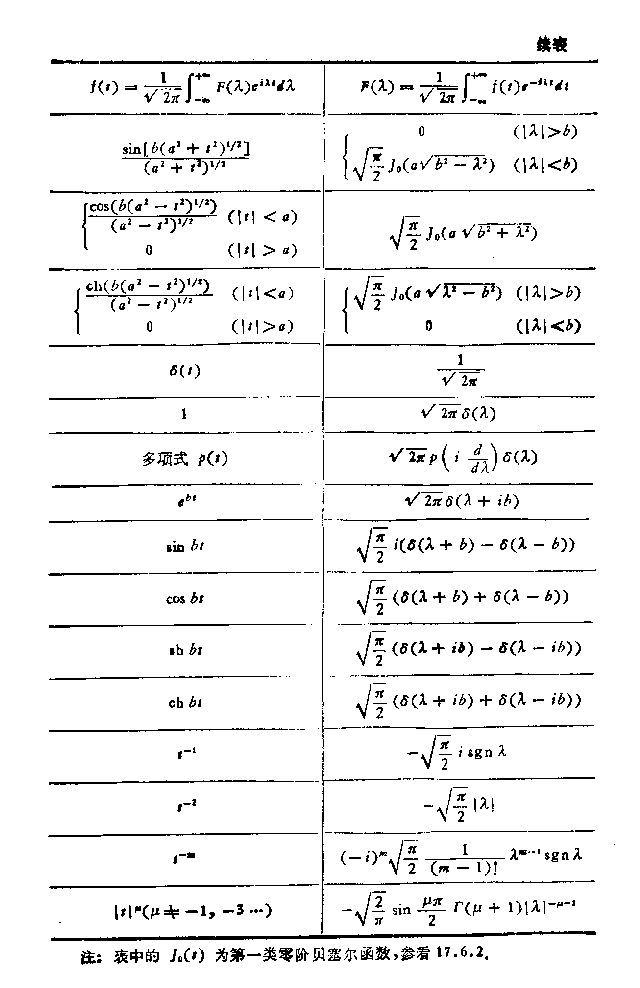 续表
f(t) = \frac{1}{\sqrt{2\pi}} \int_{-\infty}^{+\infty} F(λ)e^{iλt}dλ    F(λ) = \frac{1}{\sqrt{2\pi}} \int_{-\infty}^{+\infty} f(t)e^{-iλt}dt
\frac{\sin[b(a² + t²)^{1/2}]}{(a² + t²)^{1/2}}    { 0 (|λ|>b)
\sqrt{\frac{π}{2}} J₀(a\sqrt{b² − λ²}) (|λ|<b)
{ \frac{\cos(b(a² − t²)^{1/2})}{(a² − t²)^{1/2}} (|t| < a)    \sqrt{\frac{π}{2}} J₀(a\sqrt{b² + λ²})
0 (|t| > a)
{ \frac{ch(b(a² − t²)^{1/2})}{(a² − t²)^{1/2}} (|t|<a)    { \sqrt{\frac{π}{2}} J₀(a\sqrt{λ² − b²}) (|λ|>b)
0 (|t|>a)    0 (|λ|<b)
δ(t)    \frac{1}{\sqrt{2π}}
1    \sqrt{2π} δ(λ)
多项式 p(t)    \sqrt{2π} p(i \frac{d}{dλ}) δ(λ)
e^{bt}    \sqrt{2π} δ(λ + ib)
sin bt    \sqrt{\frac{π}{2}} i(δ(λ + b) − δ(λ − b))
cos bt    \sqrt{\frac{π}{2}} (δ(λ + b) + δ(λ − b))
sh bt    \sqrt{\frac{π}{2}} (δ(λ + ib) − δ(λ − ib))
ch bt    \sqrt{\frac{π}{2}} (δ(λ + ib) + δ(λ − ib))
t^{-1}    −\sqrt{\frac{π}{2}} i sgn λ
t^{-2}    −\sqrt{\frac{π}{2}} |λ|
t^{-m}    (−i)^m \sqrt{\frac{π}{2}} \frac{1}{(m − 1)!} λ^{m-1} sgn λ
|t|^μ(μ ≠ −1, −3⋯)    −\sqrt{\frac{2}{π}} sin \frac{μπ}{2} Γ(μ + 1)|λ|^{-μ-1}
注: 表中的 J₀(t) 为第一类零阶贝塞尔函数,参看 17.6.2.